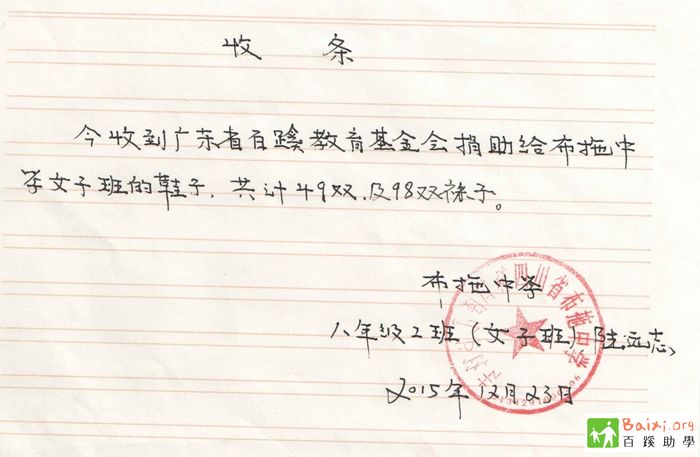 收 条
今收到广东省百蹊教育基金会捐助给布拖中
学女子班的鞋子,共计49双,及98双袜子。
布拖中学
四川省布拖中学
八年级2班(女子班)陆远志
2015年12月23日
Baixi.org
百蹊助學